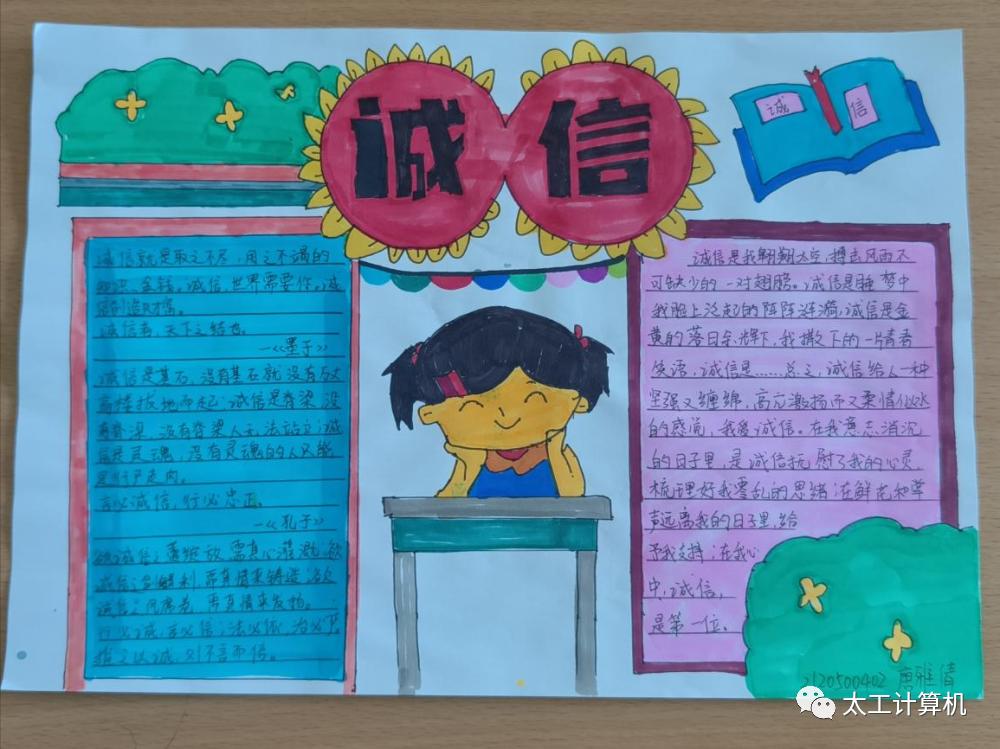 诚信
诚 信
诚信就是取之不尽,用之不竭的
知识、金钱。诚信,世界需要你。诚
信创造财富。
诚信者,天下之结也。
—《墨子》
诚信是基石,没有基石就没有万丈
高楼拔地而起;诚信是脊梁,没
有脊梁,没有脊梁人无法站立;诚
信是灵魂,没有灵魂的人只能
是行尸走肉。
言必诚信,行必忠正。
—《孔子》
欲诚信之蕾绽放,需真心灌溉,欲
诚信之剑
行必诚,言必信;法必依,治必严。
推之以诚,则不言而信。
诚信是我翱翔太空,搏击风雨不
可缺少的一对翅膀。诚信是睡梦中
我脸上泛起的阵阵涟漪,诚信是金
黄的落日余辉下,我撒下的一片青春
笑语,诚信是……总之,诚信给人一种
坚强又缠绵,高亢激扬而又柔情似水
的感觉,我爱诚信。在我意志消沉
的日子里,是诚信抚慰了我的心灵,
梳理好我零乱的思绪;在鲜花和掌
声远离我的日子里,给
予我支持;在我心
中,诚信,
是第一位。
2120500402 唐雅倩
太工计算机